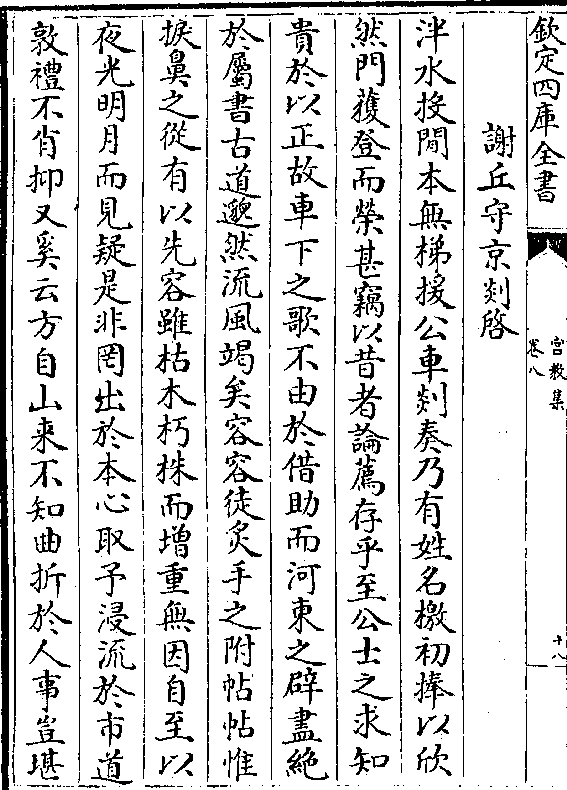 欽定四庫全書
宫教集
卷八
十八
謝丘守京剡啓
泮水投閒本無梯援公車剡奏乃有姓名檄初捧以欣
然門蒦登而榮甚竊以昔者論薦存乎至公士之求知
貴於以正故車下之歌不由於借助而河東之辟盡絶
於屬書古道邈然流風竭矣容容徒炙手之附帖帖惟
捩鼻之從有以先容雖枯木朽株而增重無因自至以
夜光明月而見疑是非罔出於本心取予浸流於市道
敦禮不肖抑又奚云方自山來不知曲折於人事豈堪